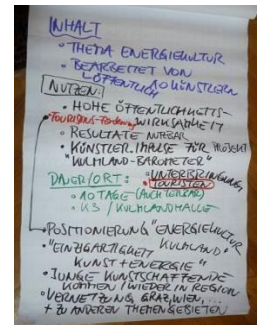 INHALT
• THEMA ENERGIEKULTUR
• BEARBEITET VON
10 KÜNSTLERN
ÖFFENTLICH
NUTZEN:
• HOHE ÖFFENTLICHKEITS-
WIRKSAMKEIT
• RESULTATE NUTZBAR
• KÜNSTLER. IMPULSE FÜR
"KULMLAND-BAROMETER"
• UNTERBRINGUNG
DAUER/ORT: • TOURISTEN
• 10 TAGE (AUCH TEILBAR)
• K3 / KULMLANDHALLE
• POSITIONIERUNG "ENERGIEKULTUR
KULMLAND"
• "EINZIGARTIGKEIT
KUNST + ENERGIE"
• JUNGE KUNSTSCHAFFENDE
KOMMEN / WIEDER IN REGION
• VERNETZUNG, GRAZ, WIEN, ...
+ ZU ANDEREN THEMENGEBIETEN